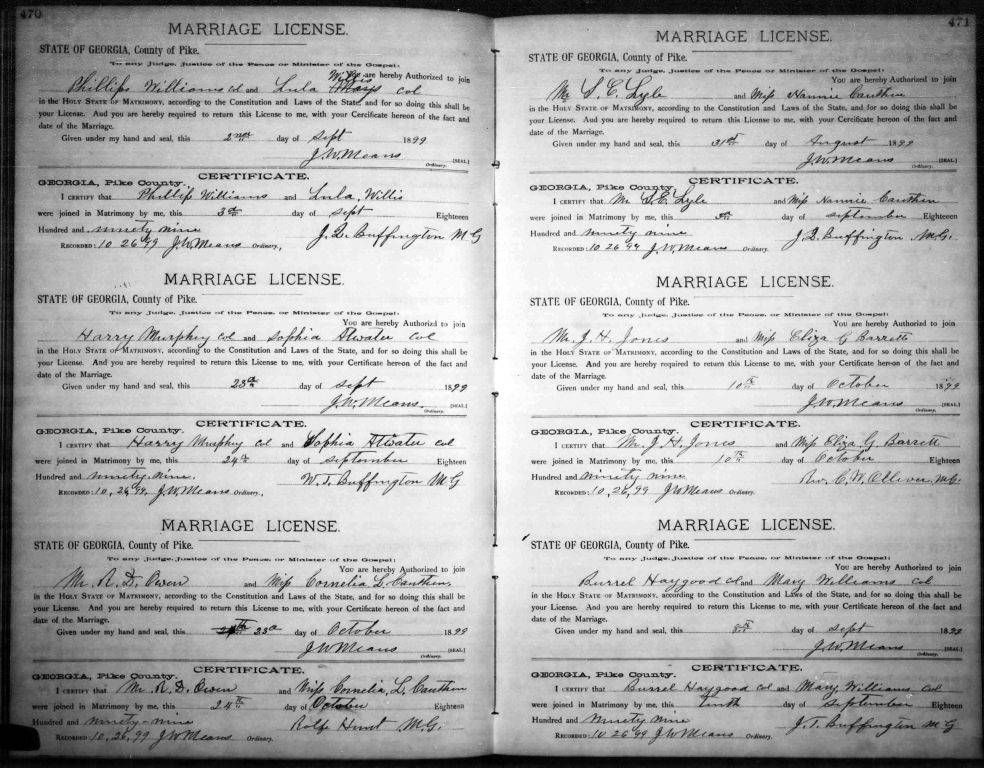 470
MARRIAGE LICENSE.
STATE OF GEORGIA, County of Pike.
To any Judge, Justice of the Peace or Minister of the Gospel:
You are hereby Authorized to join
Phillips Williams col and Lula Willis col
in the HOLY STATE OF MATRIMONY, according to the Constitution and Laws of the State, and for so doing this shall be
your License. And you are hereby required to return this License to me, with your Certificate hereon of the fact and
date of the Marriage.
Given under my hand and seal, this 2nd day of Sept 1899
J.W. Means [SEAL.]
Ordinary.
CERTIFICATE.
GEORGIA, Pike County.
I CERTIFY that Phillip Williams and Lula Willis
were joined in Matrimony by me, this 3rd day of Sept Eighteen
Hundred and ninety nine J. Buffington M G
RECORDED: 10 26 99 J.W. Means Ordinary.
MARRIAGE LICENSE.
STATE OF GEORGIA, County of Pike.
To any Judge, Justice of the Peace or Minister of the Gospel:
You are hereby Authorized to join
Harry Murphey col and Sophia Atwater col
in the HOLY STATE OF MATRIMONY, according to the Constitution and Laws of the State, and for so doing this shall be
your License. And you are hereby required to return this License to me, with your Certificate hereon of the fact and
date of the Marriage.
Given under my hand and seal, this 23rd day of Sept 1899
J.W. Means [SEAL.]
Ordinary.
CERTIFICATE.
GEORGIA, Pike County.
I CERTIFY that Harry Murphey col and Sophia Atwater col
were joined in Matrimony by me, this 24th day of September Eighteen
Hundred and ninety nine. Buffington M G
RECORDED: 10, 26, 99, J.W. Means Ordinary.
MARRIAGE LICENSE.
STATE OF GEORGIA, County of Pike.
To any Judge, Justice of the Peace or Minister of the Gospel:
You are hereby Authorized to join
Mr. R. D. Owen and Miss Cornelia L. Cauthen,
in the HOLY STATE OF MATRIMONY, according to the Constitution and Laws of the State, and for so doing this shall be
your License. And you are hereby required to return this License to me, with your Certificate hereon of the fact and
date of the Marriage.
Given under my hand and seal, this 23d day of October 1899
J.W. Means [SEAL.]
Ordinary.
CERTIFICATE.
GEORGIA, Pike County.
I CERTIFY that Mr. R. D. Owen and Miss Cornelia L. Cauthen
were joined in Matrimony by me, this 24th day of October Eighteen
Hundred and ninety-nine Rolfe Hunt M.G.
RECORDED: 10, 26, 99 J.W. Means Ordinary.
471
MARRIAGE LICENSE.
STATE OF GEORGIA, County of Pike.
To any Judge, Justice of the Peace or Minister of the Gospel:
You are hereby Authorized to join
Mr S. E. Lyle and Miss Nannie Cauthen
in the HOLY STATE OF MATRIMONY, according to the Constitution and Laws of the State, and for so doing this shall be
your License. And you are hereby required to return this License to me, with your Certificate hereon of the fact and
date of the Marriage.
Given under my hand and seal, this 31st day of August 1899
J.W. Means [SEAL.]
Ordinary.
CERTIFICATE.
GEORGIA, Pike County.
I CERTIFY that Mr S. E. Lyle and Miss Nannie Cauthen
were joined in Matrimony by me, this 3rd day of September Eighteen
Hundred and ninety nine J. Buffington M.G.
RECORDED: 10 26 99 J.W. Means Ordinary.
MARRIAGE LICENSE.
STATE OF GEORGIA, County of Pike.
To any Judge, Justice of the Peace or Minister of the Gospel:
You are hereby Authorized to join
Mr. J. H. Jones and Miss Eliza G Barrett
in the HOLY STATE OF MATRIMONY, according to the Constitution and Laws of the State, and for so doing this shall be
your License. And you are hereby required to return this License to me, with your Certificate hereon of the fact and
date of the Marriage.
Given under my hand and seal, this 10th day of October 1899
J.W. Means [SEAL.]
Ordinary.
CERTIFICATE.
GEORGIA, Pike County.
I CERTIFY that Mr. J. H. Jones and Miss Eliza G. Barrett
were joined in Matrimony by me, this 10th day of October Eighteen
Hundred and ninety nine Rev. C. W. Olliver, M.G.
RECORDED: 10, 26, 99 J.W. Means Ordinary.
MARRIAGE LICENSE.
STATE OF GEORGIA, County of Pike.
To any Judge, Justice of the Peace or Minister of the Gospel:
You are hereby Authorized to join
Burrel Haygood col and Mary Williams col
in the HOLY STATE OF MATRIMONY, according to the Constitution and Laws of the State, and for so doing this shall be
your License. And you are hereby required to return this License to me, with your Certificate hereon of the fact and
date of the Marriage.
Given under my hand and seal, this 8th day of Sept 1899
J.W. Means [SEAL.]
Ordinary.
CERTIFICATE.
GEORGIA, Pike County.
I CERTIFY that Burrel Haygood col and Mary Williams col
were joined in Matrimony by me, this tenth day of September Eighteen
Hundred and Ninety nine J. T. Buffington M G
RECORDED: 10 26 99 J.W. Means Ordinary.